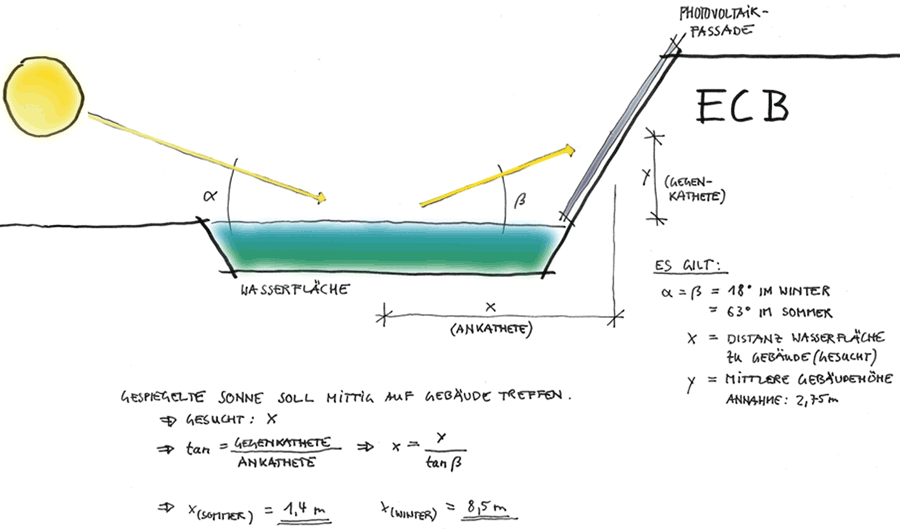 PHOTOVOLTAIK-
FASSADE
ECB
α
β
y
(GEGEN-
KATHETE)
WASSERFLÄCHE
x
(ANKATHETE)
ES GILT:
α = β = 18° IM WINTER
= 63° IM SOMMER
x = DISTANZ WASSERFLÄCHE
ZU GEBÄUDE (GESUCHT)
y = MITTLERE GEBÄUDEHÖHE
ANNAHME: 2,75m
GESPIEGELTE SONNE SOLL MITTIG AUF GEBÄUDE TREFFEN.
⇒ GESUCHT: X
⇒ tan = GEGENKATHETE / ANKATHETE ⇒ x = y / tan β
⇒ x (SOMMER) = 1,4 m x (WINTER) = 8,5 m